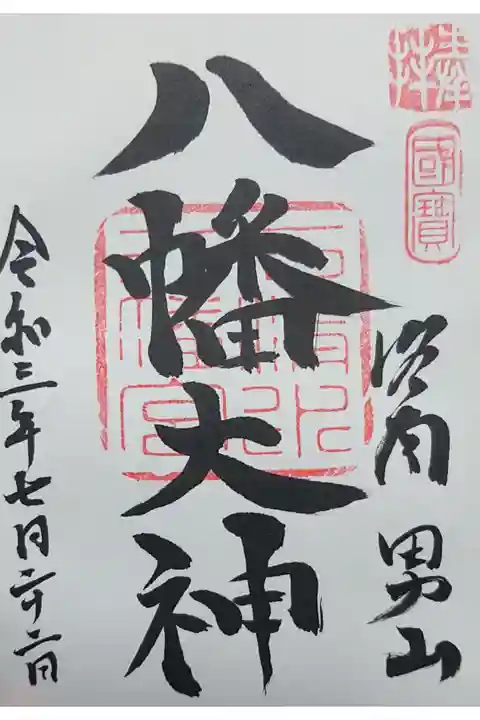 奉拝
國寶
洛南 男山
八幡大神
石清水
八幡宮
令和三年七月二十二日